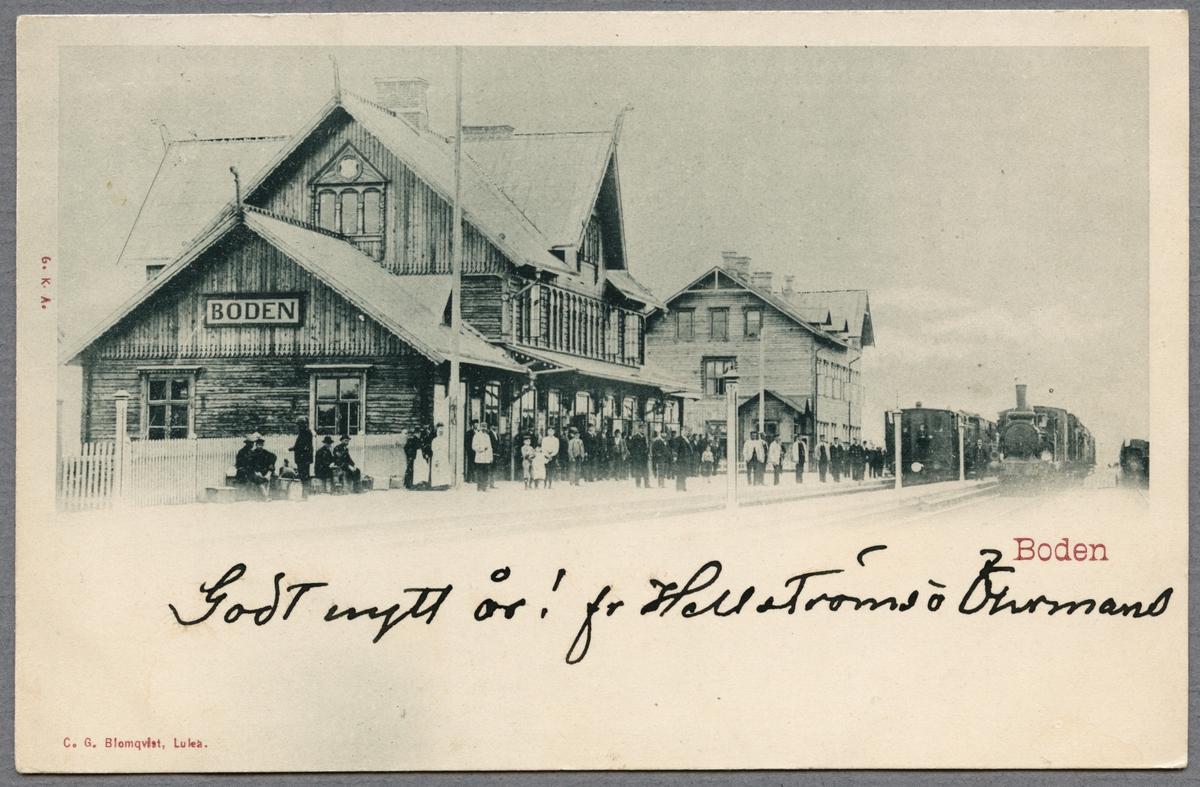 G. K. Å.
BODEN
Boden
Godt nytt år! fr Hellströms ö Öhrmans
C. G. Blomqvist, Luleå.